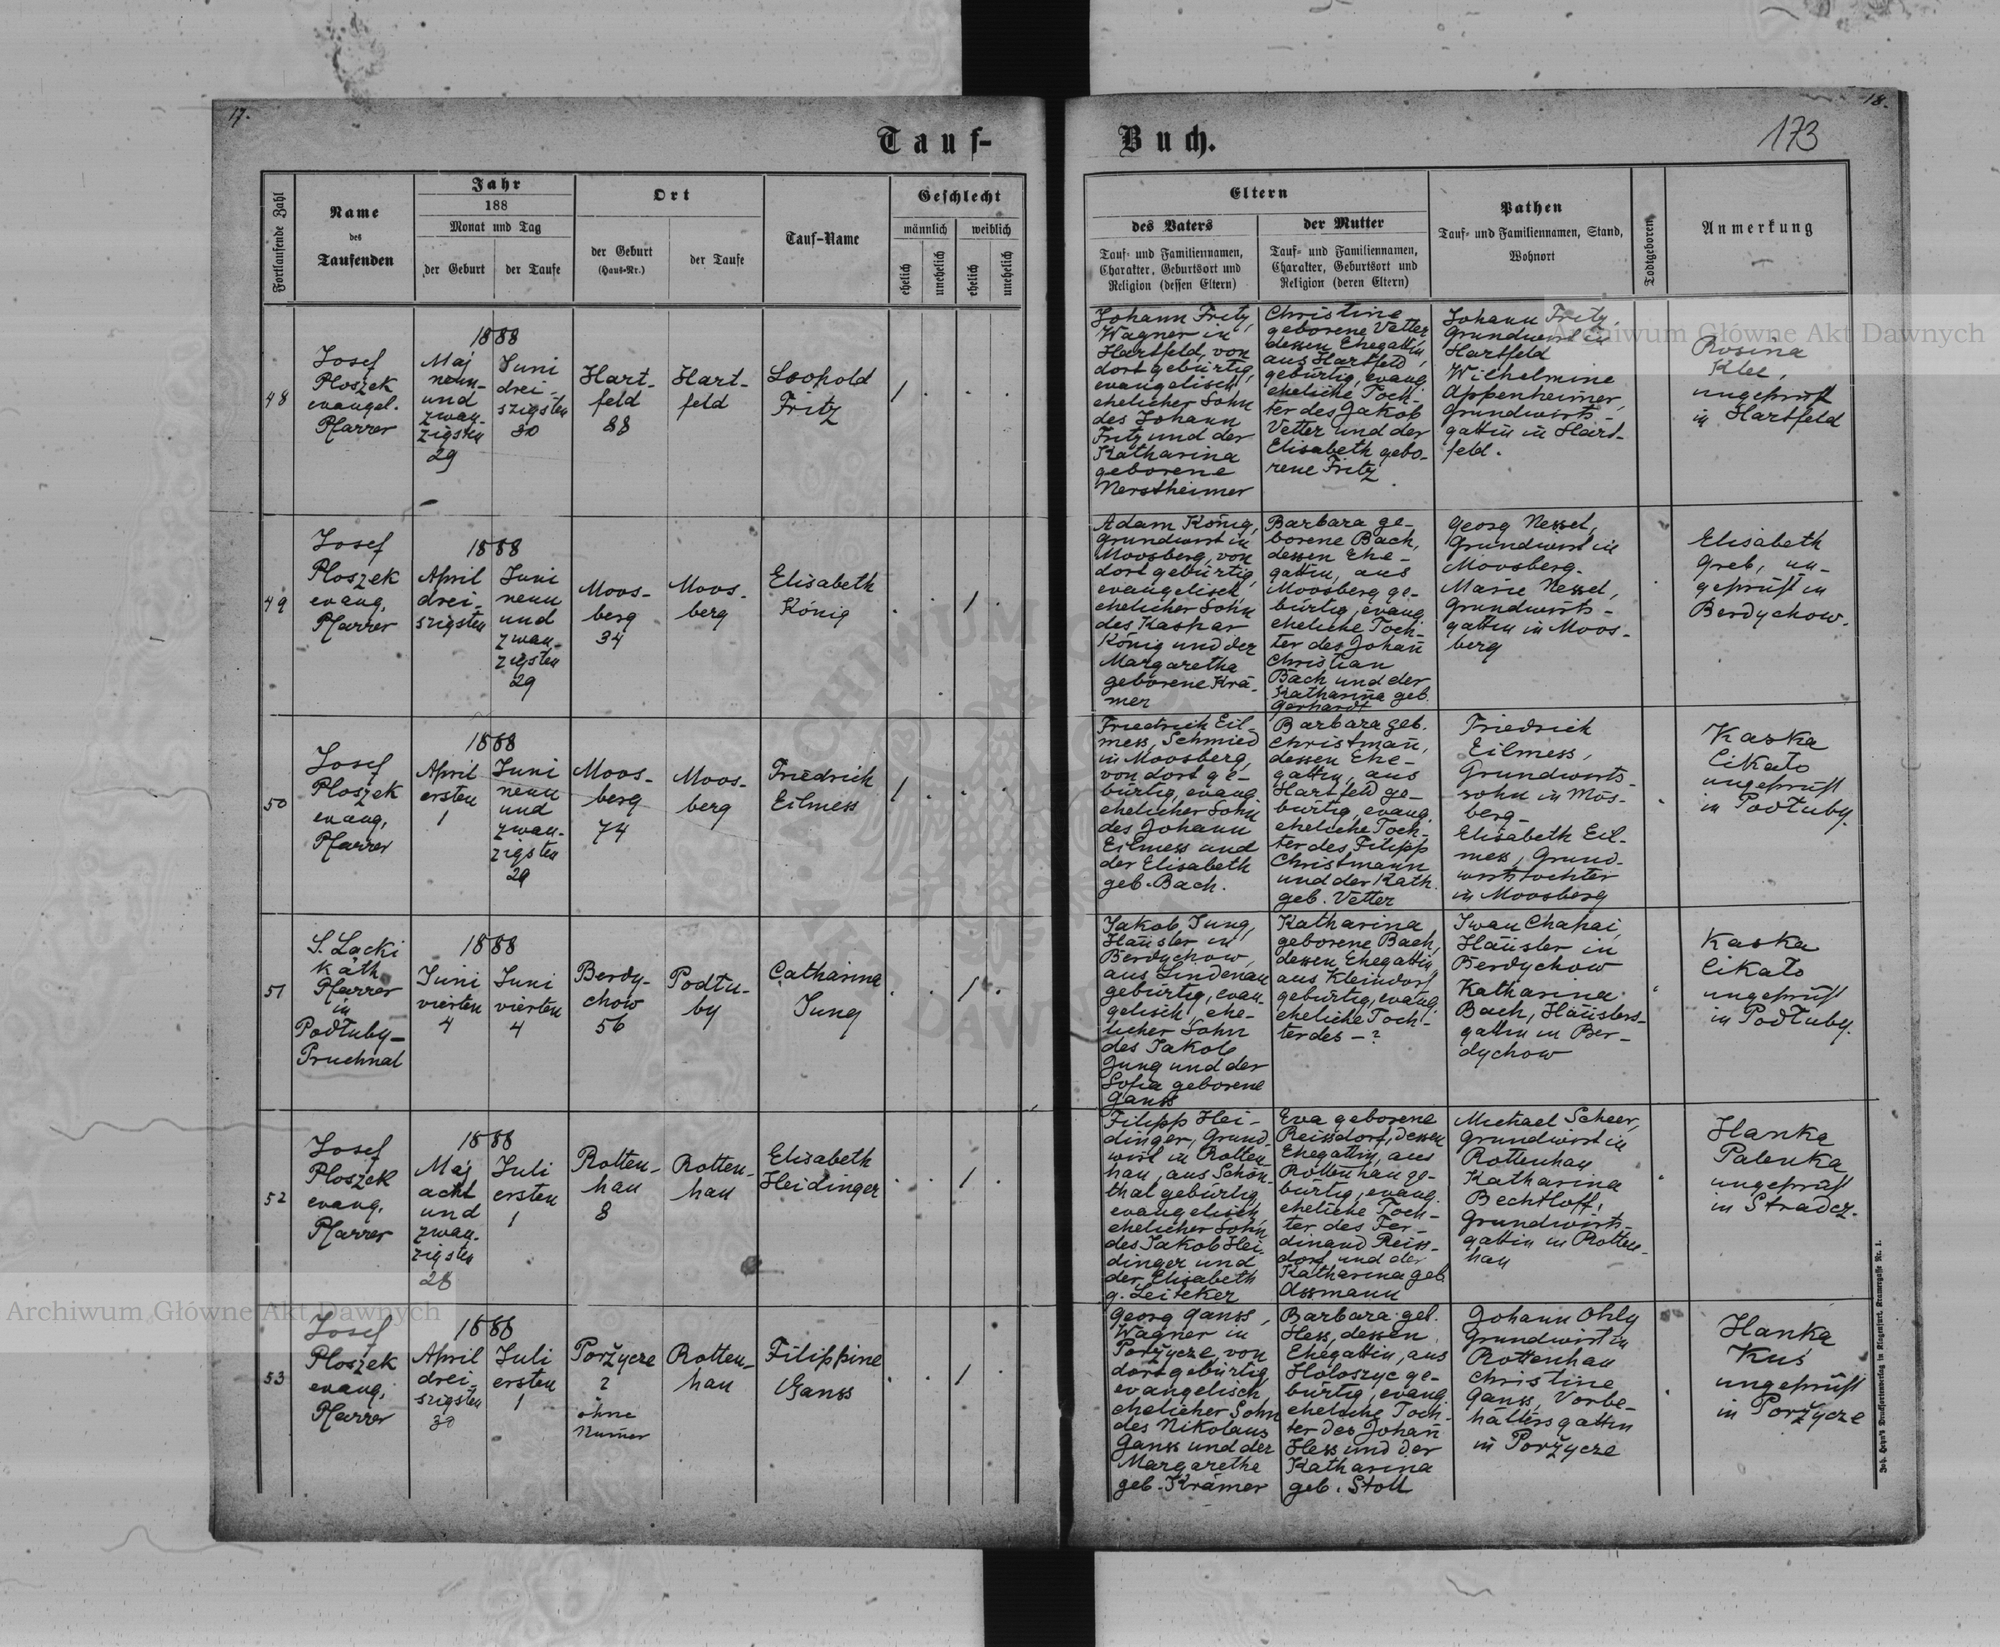 17.
18.
173
Tauf-
Buch.
Fortlaufende Zahl
Name
des
Taufenden
Jahr
188
Monat und Tag
der Geburt
der Taufe
Ort
der Geburt
(Haus-Nr.)
der Taufe
Tauf-Name
Geschlecht
männlich
weiblich
ehelich
unehelich
ehelich
unehelich
Eltern
des Vaters
Tauf- und Familiennamen,
Charakter, Geburtsort und
Religion (dessen Eltern)
der Mutter
Tauf- und Familiennamen,
Charakter, Geburtsort und
Religion (deren Eltern)
Pathen
Tauf- und Familiennamen, Stand,
Wohnort
Todtgeboren
Anmerkung
48
Josef
Ploszek
evangel.
Pfarrer
1888
Maj
neun-
und
zwan-
zigsten
29
Juni
drei-
szigsten
30
Hart-
feld
88
Hart-
feld
Leopold
Fritz
1
Johann Fritz,
Wagner in
Hartfeld, von
dort gebürtig,
evangelisch,
ehelicher Sohn
des Johann
Fritz und der
Katharina
geborene
Nerstheimer
Christine
geborene Vetter
dessen Ehegattin
aus Hartfeld,
gebürtig, evang.
eheliche Toch-
ter des Jakob
Vetter und der
Elisabeth gebo-
rene Fritz
Johann Fritz,
Grundwirt in
Hartfeld
Wilhelmine
Appenheimer,
Grundwirts-
gattin in Hart-
feld.
Rosina
Klee,
ungeprüft
in Hartfeld
49
Josef
Ploszek
evang.
Pfarrer
1888
April
drei-
szigsten
Juni
neun
und
zwan-
zigsten
29
Moos-
berg
34
Moos-
berg
Elisabeth
König
1
Adam König,
Grundwirt in
Moosberg, von
dort gebürtig,
evangelisch,
ehelicher Sohn
des Kaspar
König und der
Margaretha
geborene Krä-
mer
Barbara ge-
borene Bach,
dessen Ehe-
gattin, aus
Moosberg ge-
bürtig, evang.
eheliche Toch-
ter des Johan̄
Christian
Bach und der
Katharina geb.
Gerhardt
Georg Nessel,
Grundwirt in
Moosberg.
Marie Nessel,
Grundwirts-
gattin in Moos-
berg
Elisabeth
Greb, un-
geprüft in
Berdychow.
50
Josef
Ploszek
evang.
Pfarrer
1888
April
ersten
1
Juni
neun
und
zwan-
zigsten
29
Moos-
berg
74
Moos-
berg
Friedrich
Eilmess
1
Friedrich Eil-
mess, Schmied
in Moosberg,
von dort ge-
bürtig, evang.
ehelicher Sohn
des Johann
Eilmess und
der Elisabeth
geb. Bach.
Barbara geb.
Christman̄,
dessen Ehe-
gattin, aus
Hartfeld ge-
bürtig, evang.
eheliche Toch-
ter des Filipp
Christmann
und der Kath.
geb. Vetter
Friedrich
Eilmess,
Grundwirts-
sohn in Mos-
berg-
Elisabeth Eil-
mess, Grund-
wirtstochter
in Moosberg
Kaska
Cikało
ungeprüft
in Podłuby.
51
S. Lacki
Kath
Pfarrer
in
Podłuby-
Pruchnal
1888
Juni
vierten
4
Juni
vierten
4
Berdy-
chow
56
Podłu-
by
Catharina
Jung
1
Jakob Jung,
Häusler in
Berdychow,
aus Lindenau
gebürtig, evan-
gelisch, ehe-
licher Sohn
des Jakob
Jung und der
Sofia geborene
Ganss
Katharina
geborene Bach,
dessen Ehegattin
aus Kleindorf
gebürtig, evang.
eheliche Toch-
ter des - ?
Iwan Chapai,
Häusler in
Berdychow
Katharina
Bach, Häuslers-
gattin in Ber-
dychow
Kaska
Cikało
ungeprüft
in Podłuby.
52
Josef
Ploszek
evang.
Pfarrer
1888
Maj
acht
und
zwan-
zigsten
28
Juli
ersten
1
Rotten-
hau
8
Rotten-
hau
Elisabeth
Heidinger
1
Filipp Hei-
dinger, Grund-
wirt in Rotten-
hau, aus Schön-
thal gebürtig,
evangelisch,
ehelicher Sohn
des Jakob Hei-
dinger und
der Elisabeth
g. Leiteker
Eva geborene
Reissdorf, dessen
Ehegattin, aus
Rottenhau ge-
bürtig, evang.
eheliche Toch-
ter des Fer-
dinand Reiss-
dorf und der
Katharina geb
Assmann
Michael Scheer,
Grundwirt in
Rottenhau
Katharina
Bechtloff,
Grundwirts-
gattin in Rotten-
hau
Hanka
Palenka
ungeprüft
in Stradcz.
53
Josef
Ploszek
evang.
Pfarrer
1888
April
drei-
szigsten
30
Juli
ersten
1
Poržycze
?
ohne
Num̄er
Rotten-
hau
Filippine
Ganss
1
Georg Ganss,
Wagner in
Poržycze, von
dort gebürtig,
evangelisch,
ehelicher Sohn
des Nikolaus
Ganss und der
Margarethe
geb. Krämer
Barbara geb.
Hess, dessen
Ehegattin, aus
Holoszyc ge-
bürtig, evang.
eheliche Toch-
ter des Johan̄
Hess und der
Katharina
geb. Stoll
Johann Ohly
Grundwirt in
Rottenhau
Christine
Ganss, Vorbe-
hältersgattin
in Poržycze
Hanka
Kuś
ungeprüft
in Poržycze
Joh. Heyn's Drucksortenverlag in Klagenfurt, Kramergasse Nr. 1.
Archiwum Główne Akt Dawnych
Archiwum Główne Akt Dawnych